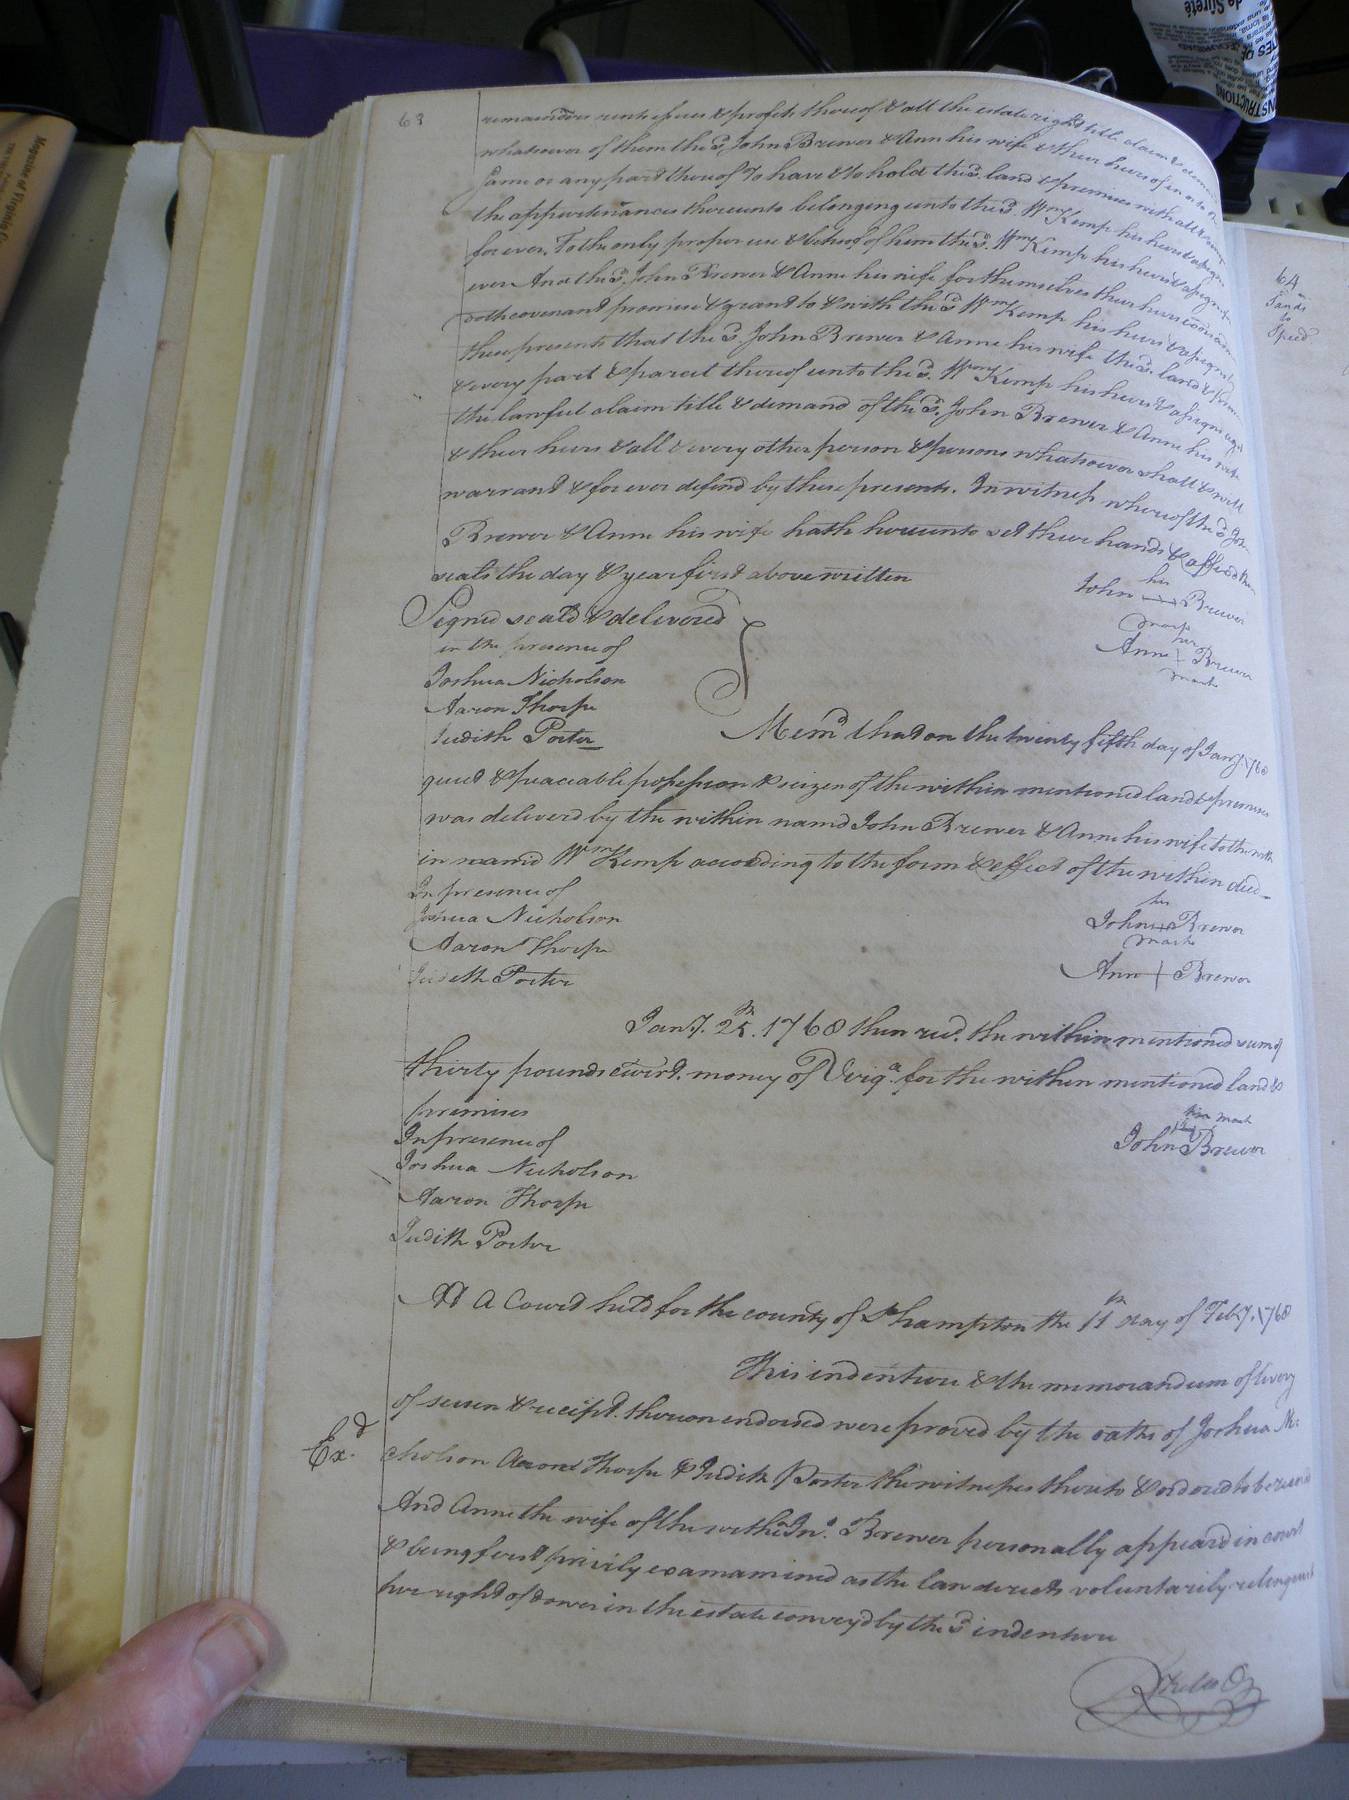 63
remainders rents issues & profits thereof & all the estate right title claim & demand
whatsoever of them the sd. John Brewer & Ann his wife & their heirs of in or to the
same or any part thereof To have & to hold the sd. land & premises with all &
the appurtenances thereunto belonging unto the sd. Wm Kemp his heirs & assigns
for ever. To the only proper use & behoof of him the sd. Wm Kemp his heirs & assigns for
ever And the sd. John Brewer & Anne his wife for themselves their heirs
doth covenant promise & grant to & with the sd Wm Kemp his heirs & assigns by
these presents that the sd. John Brewer & Anne his wife the sd. land &
& every part & parcel thereof unto the sd. Wm Kemp his heirs & assigns
the lawful claim title & demand of the sd. John Brewer & Anne his wife
& their heirs & all & every other person & persons whatsoever shall & will
warrant & for ever defend by these presents. In witness whereof the sd John
Brewer & Anne his wife hath hereunto set their hands & affixed their
seals the day & year first above written
his
John Brewer
mark
Signed seald & delivered
her
Anne Brewer
mark
in the presence of
Joshua Nicholson
Aaron Thorpe
Judith Porter
Memd that on the twenty fifth day of Jany 1768
quiet & peaceable possession & seizen of the within mentioned land & premises
was deliverd by the within namd John Brewer & Anne his wife to the with
in namd Wm Kemp according to the form & effect of the within deed
In presence of
his
Joshua Nicholson
John Brewer
mark
Aaron Thorpe
Ann Brewer
Judith Porter
Jany. 25th. 1768 then recd. the within mentioned sum of
thirty pounds currt. money of Virga. for the within mentioned land &
premises
his mark
In presence of
John Brewer
Joshua Nicholson
Aaron Thorpe
Judith Porter
At A Court held for the county of Shampton the 11th day of Feby. 1768
This indenture & the memorandum of livery
of seisen & receipt. thereon endorsed were proved by the oaths of Joshua Ni-
Exd.
cholson Aaron Thorpe & Judith Porter the witnesses thereto & ordered to be recorded
And Anne the wife of the within Jno. Brewer personally appeard in court
& being first privily examamined as the law directs voluntarily relinquish
her right of dower in the estate conveyd by the sd indenture
64
Sands
to
Speed
Magazine of Virginia
de Sûreté
INSTRUCTIONS